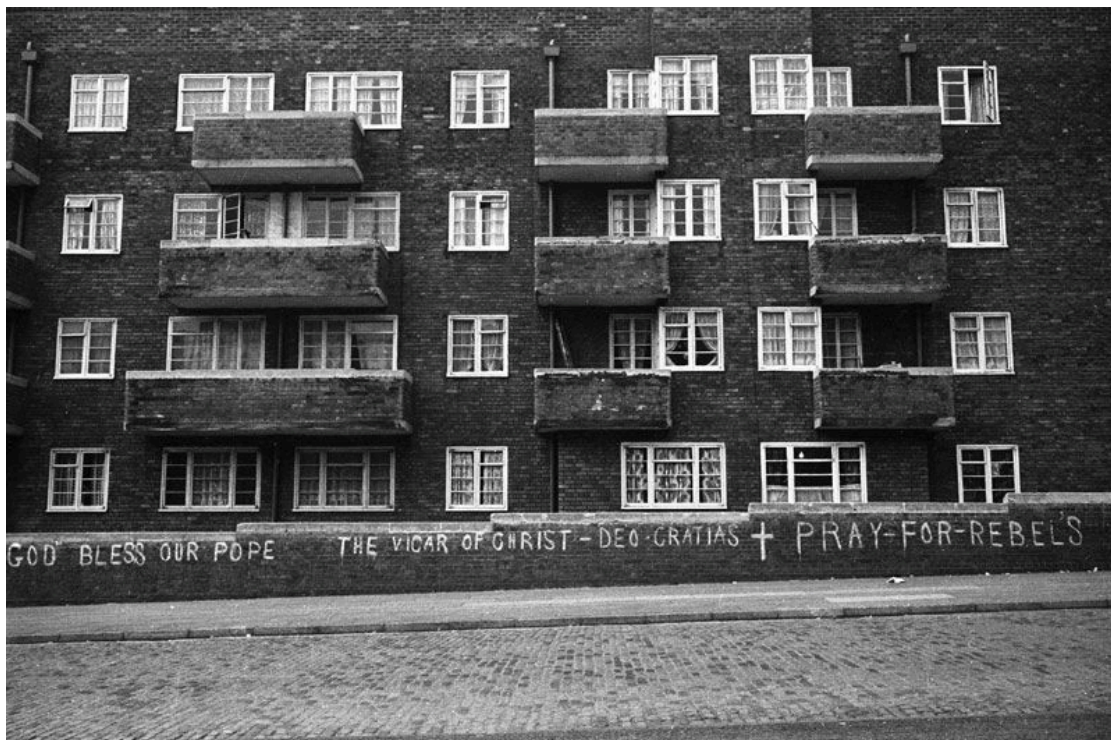 GOD BLESS OUR POPE THE VICAR OF CHRIST - DEO - GRATIAS + PRAY-FOR-REBEL'S